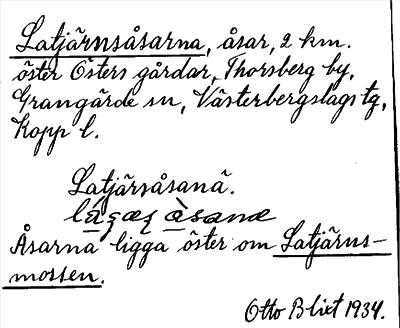 Latjärnsåsarna, åsar, 2 km.
öster Östers gårdar, Thorsberg by,
Grangärde sn, Västerbergslags tg,
Kopp l.
Latjärsåsanä.
Åsarna ligga öster om Latjärns-
mossen.
Otto Blixt 1934.